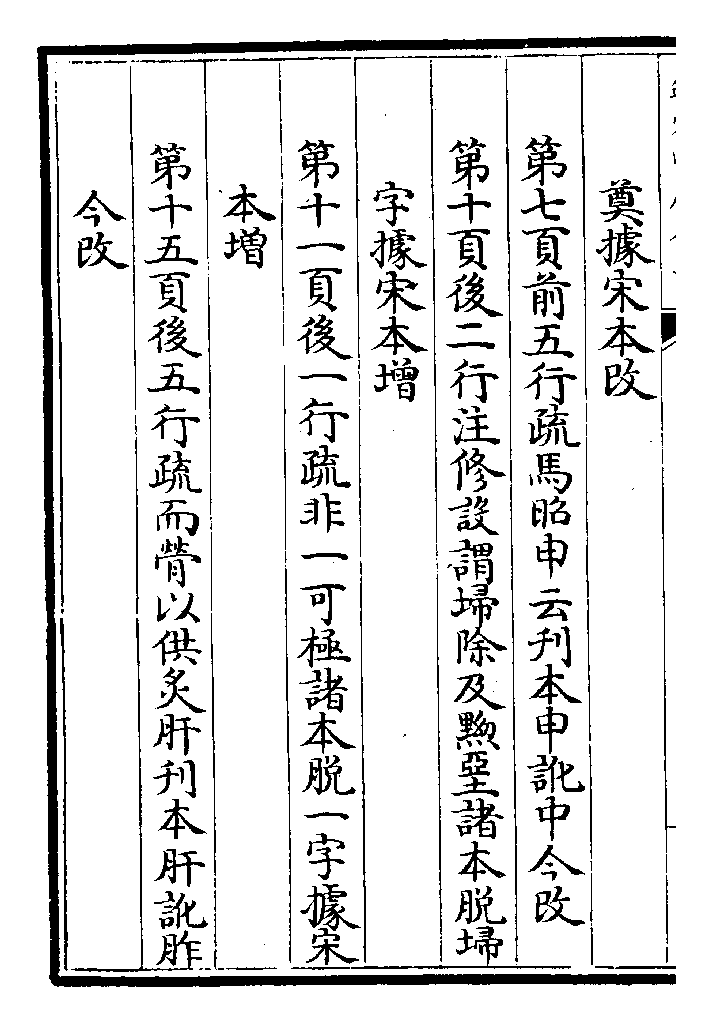 奠據宋本改
第七頁前五行疏馬昭申云刋本申訛中今改
第十頁後二行注修設謂埽除及黝堊諸本脱埽
字據宋本增
第十一頁後一行疏非一可極諸本脱一字據宋
本增
第十五頁後五行疏而膋以供炙肝刋本肝訛胙
今改